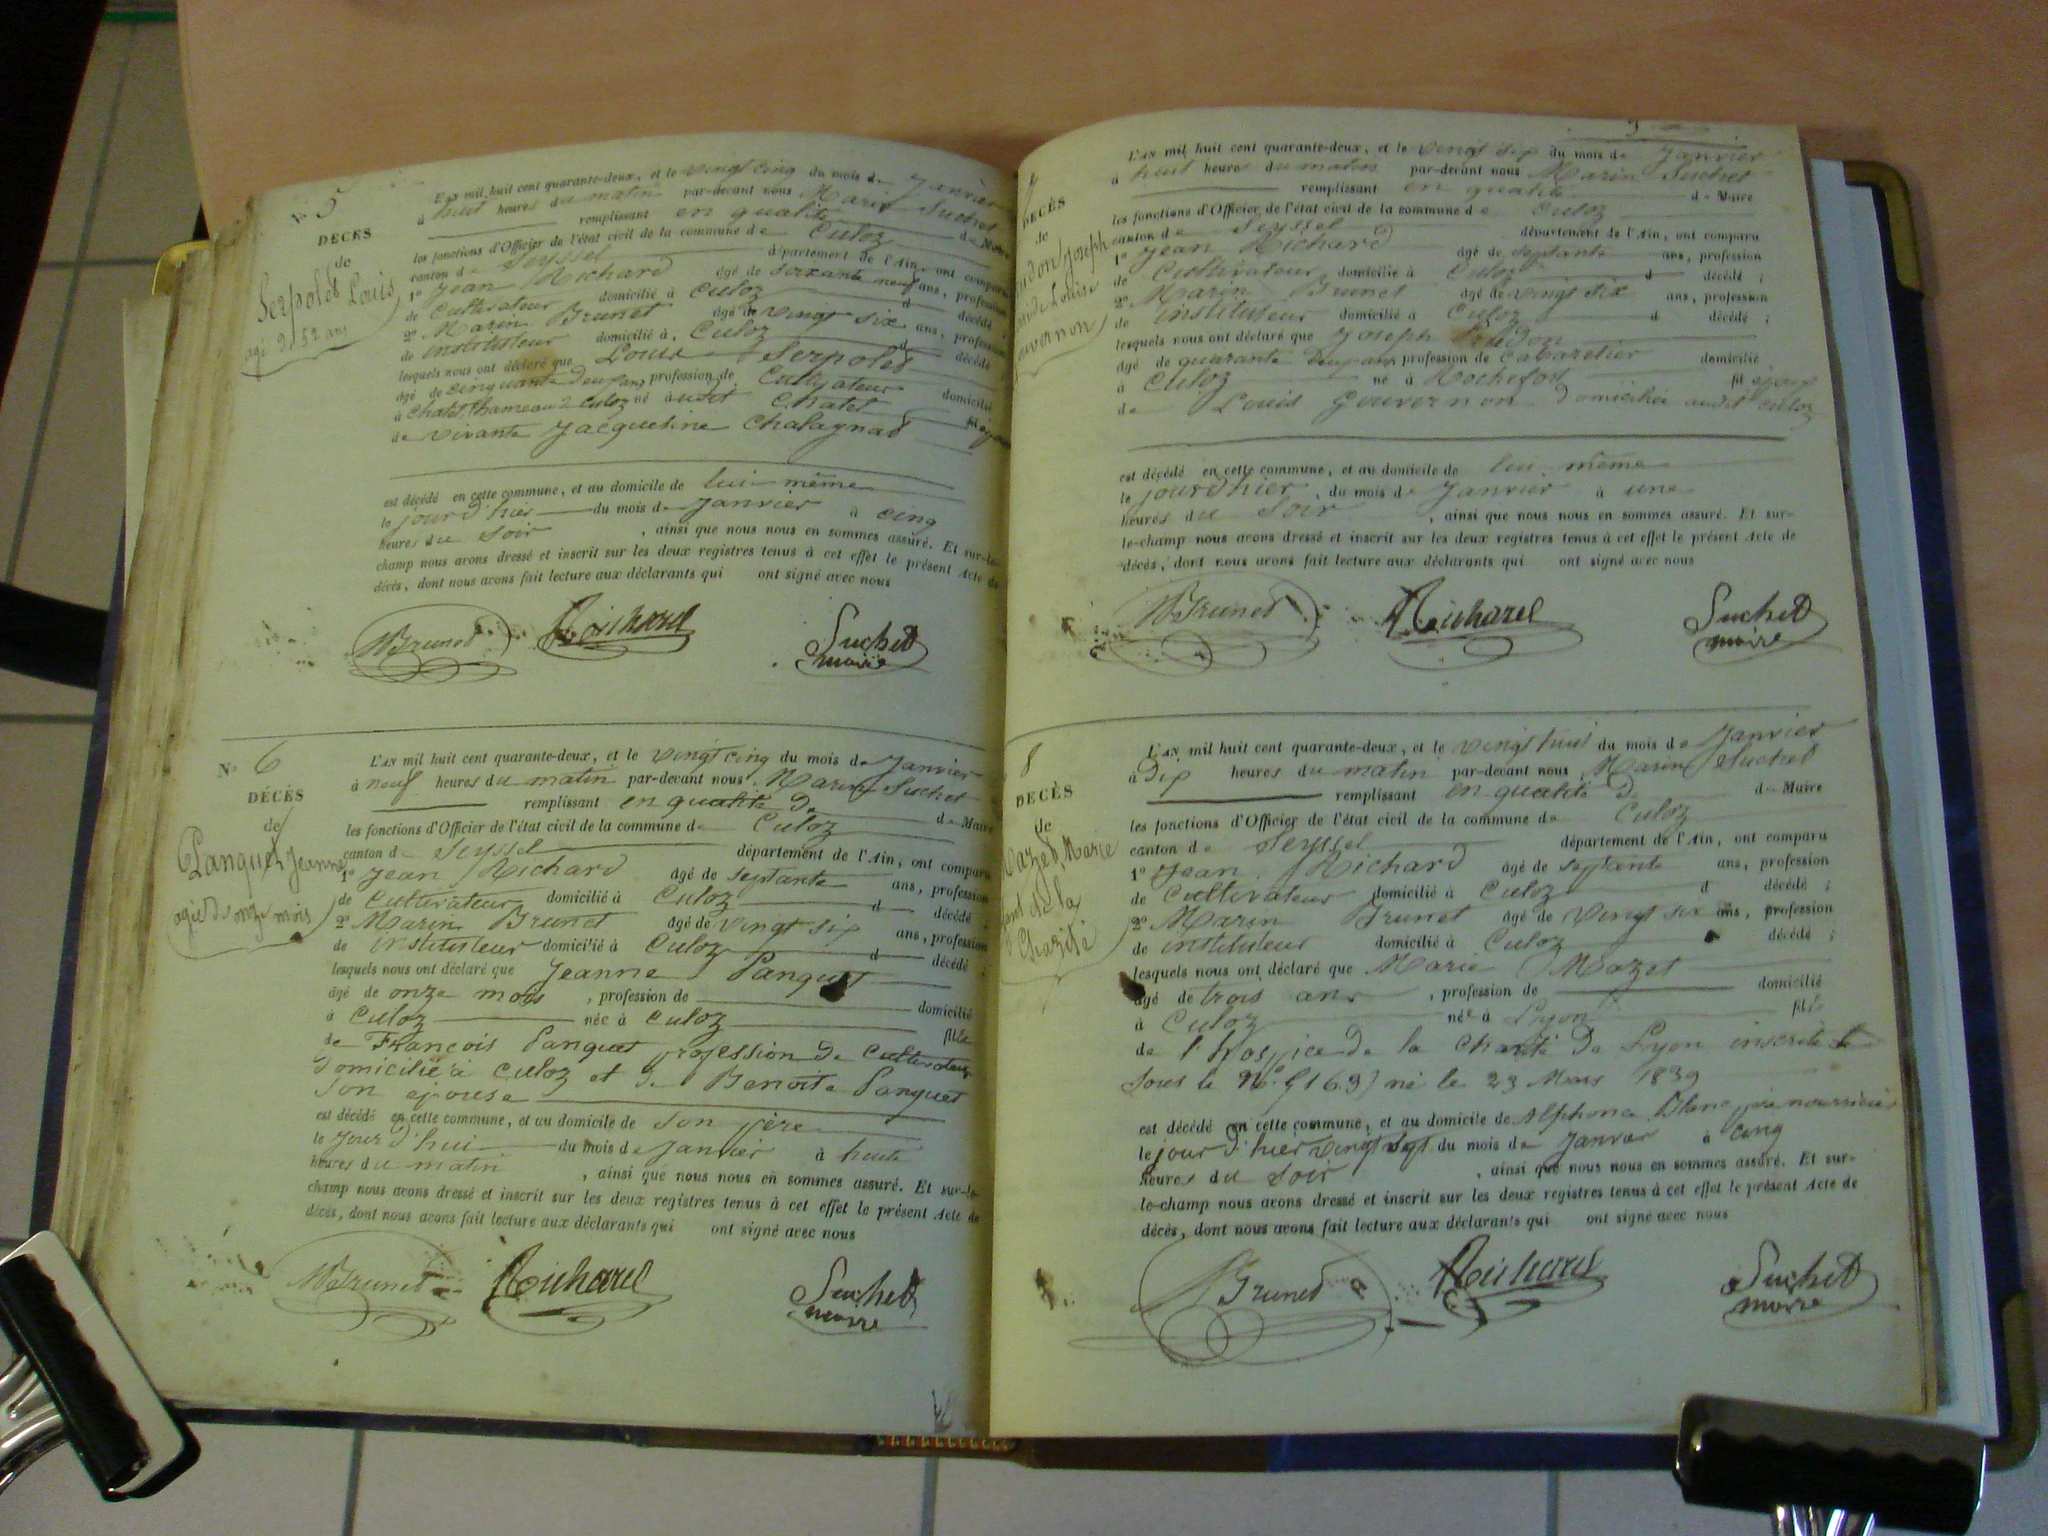 N° 5
DÉCÈS
de
Serpolet Louis
agé de 52 ans
L'AN mil huit cent quarante-deux, et le vingt cinq du mois de Janvier
à huit heures du matin par-devant nous Marin Suchet
remplissant en qualité de Maire
les fonctions d'Officier de l'état civil de la commune de Culoz
canton de Seyssel département de l'Ain, ont comparu
1° Jean Richard âgé de soixante neuf ans, profession
de Cultivateur domicilié à Culoz d décédé ;
2° Marin Brunet âgé de vingt six ans, profession
de instituteur domicilié à Culoz d décédé
lesquels nous ont déclaré que Louis Serpolet
âgé de cinquante deux ans profession de Cultivateur domicilié
à Chatel hameau de Culoz né à udit Chatel fil époux
de vivante Jacqueline Chalagnat
est décédé en cette commune, et au domicile de lui même
le jour d'hier du mois de Janvier à cinq
heures du soir , ainsi que nous nous en sommes assuré. Et sur-le-
champ nous avons dressé et inscrit sur les deux registres tenus à cet effet le présent Acte de
décès, dont nous avons fait lecture aux déclarants qui ont signé avec nous
MBrunet Richard Suchet
maire
N° 6
DÉCÈS
de
Panquet Jeanne
agée de onze mois
L'AN mil huit cent quarante-deux, et le vingt cinq du mois de Janvier
à neuf heures du matin par-devant nous Marin Suchet
remplissant en qualité de de Maire
les fonctions d'Officier de l'état civil de la commune de Culoz
canton de Seyssel département de l'Ain, ont comparu
1° Jean Richard âgé de septante ans, profession
de Cultivateur domicilié à Culoz d décédé ;
2° Marin Brunet âgé de vingt six ans, profession
de instituteur domicilié à Culoz d décédé ;
lesquels nous ont déclaré que Jeanne Panquet
âgé de onze mois , profession de domicilié
à Culoz née à Culoz fille
de François Panquet profession de Cultivateur
domicilié à Culoz et de Benoite Panquet
son epouse
est décédé en cette commune, et au domicile de son père
le jour d'hui du mois de Janvier à huit
heures du matin , ainsi que nous nous en sommes assuré. Et sur-le-
champ nous avons dressé et inscrit sur les deux registres tenus à cet effet le présent Acte de
décès, dont nous avons fait lecture aux déclarants qui ont signé avec nous
MBrunet Richard Suchet
maire
7
DÉCÈS
de
Joseph
Louise
L'AN mil huit cent quarante-deux, et le vingt sept du mois de Janvier
à huit heures du matin par-devant nous Marin Suchet
remplissant en qualité de Maire
les fonctions d'Officier de l'état civil de la commune de Culoz
canton de Seyssel département de l'Ain, ont comparu
1° Jean Richard âgé de septante ans, profession
de Cultivateur domicilié à Culoz d décédé ;
2° Marin Brunet âgé de vingt six ans, profession
de instituteur domicilié à Culoz d décédé ;
lesquels nous ont déclaré que Joseph
âgé de quarante deux ans profession de Cabaretier domicilié
à Culoz né à Rochefort fil époux
de Louis Gouvernon domiciliée audit Culoz
est décédé en cette commune, et au domicile de lui même
le jour d'hier , du mois de Janvier à une
heures du soir , ainsi que nous nous en sommes assuré. Et sur-
le-champ nous avons dressé et inscrit sur les deux registres tenus à cet effet le présent Acte de
décès, dont nous avons fait lecture aux déclarants qui ont signé avec nous
MBrunet Richard Suchet
maire
8
DÉCÈS
de
Mazet Marie
de la
Charité
L'AN mil huit cent quarante-deux, et le vingt huit du mois de Janvier
à dix heures du matin par-devant nous Marin Suchet
remplissant en qualité de de Maire
les fonctions d'Officier de l'état civil de la commune de Culoz
canton de Seyssel département de l'Ain, ont comparu
1° Jean Richard âgé de septente ans, profession
de Cultivateur domicilié à Culoz d décédé ;
2° Marin Brunet âgé de vingt six ans, profession
de instituteur domicilié à Culoz d décédé ;
lesquels nous ont déclaré que Marie Mazet
âgé de trois ans , profession de domicilié
à Culoz née à Lyon fille
de l'hospice de la Charité de Lyon inscrite
sous le N° (169) né le 23 Mars 1839
est décédé en cette commune, et au domicile de Alphonse Blanc père nourricier
le jour d'hier vingt sept du mois de Janvier à cinq
heures du soir , ainsi que nous nous en sommes assuré. Et sur-
le-champ nous avons dressé et inscrit sur les deux registres tenus à cet effet le présent Acte de
décès, dont nous avons fait lecture aux déclarants qui ont signé avec nous
MBrunet Richard Suchet
maire